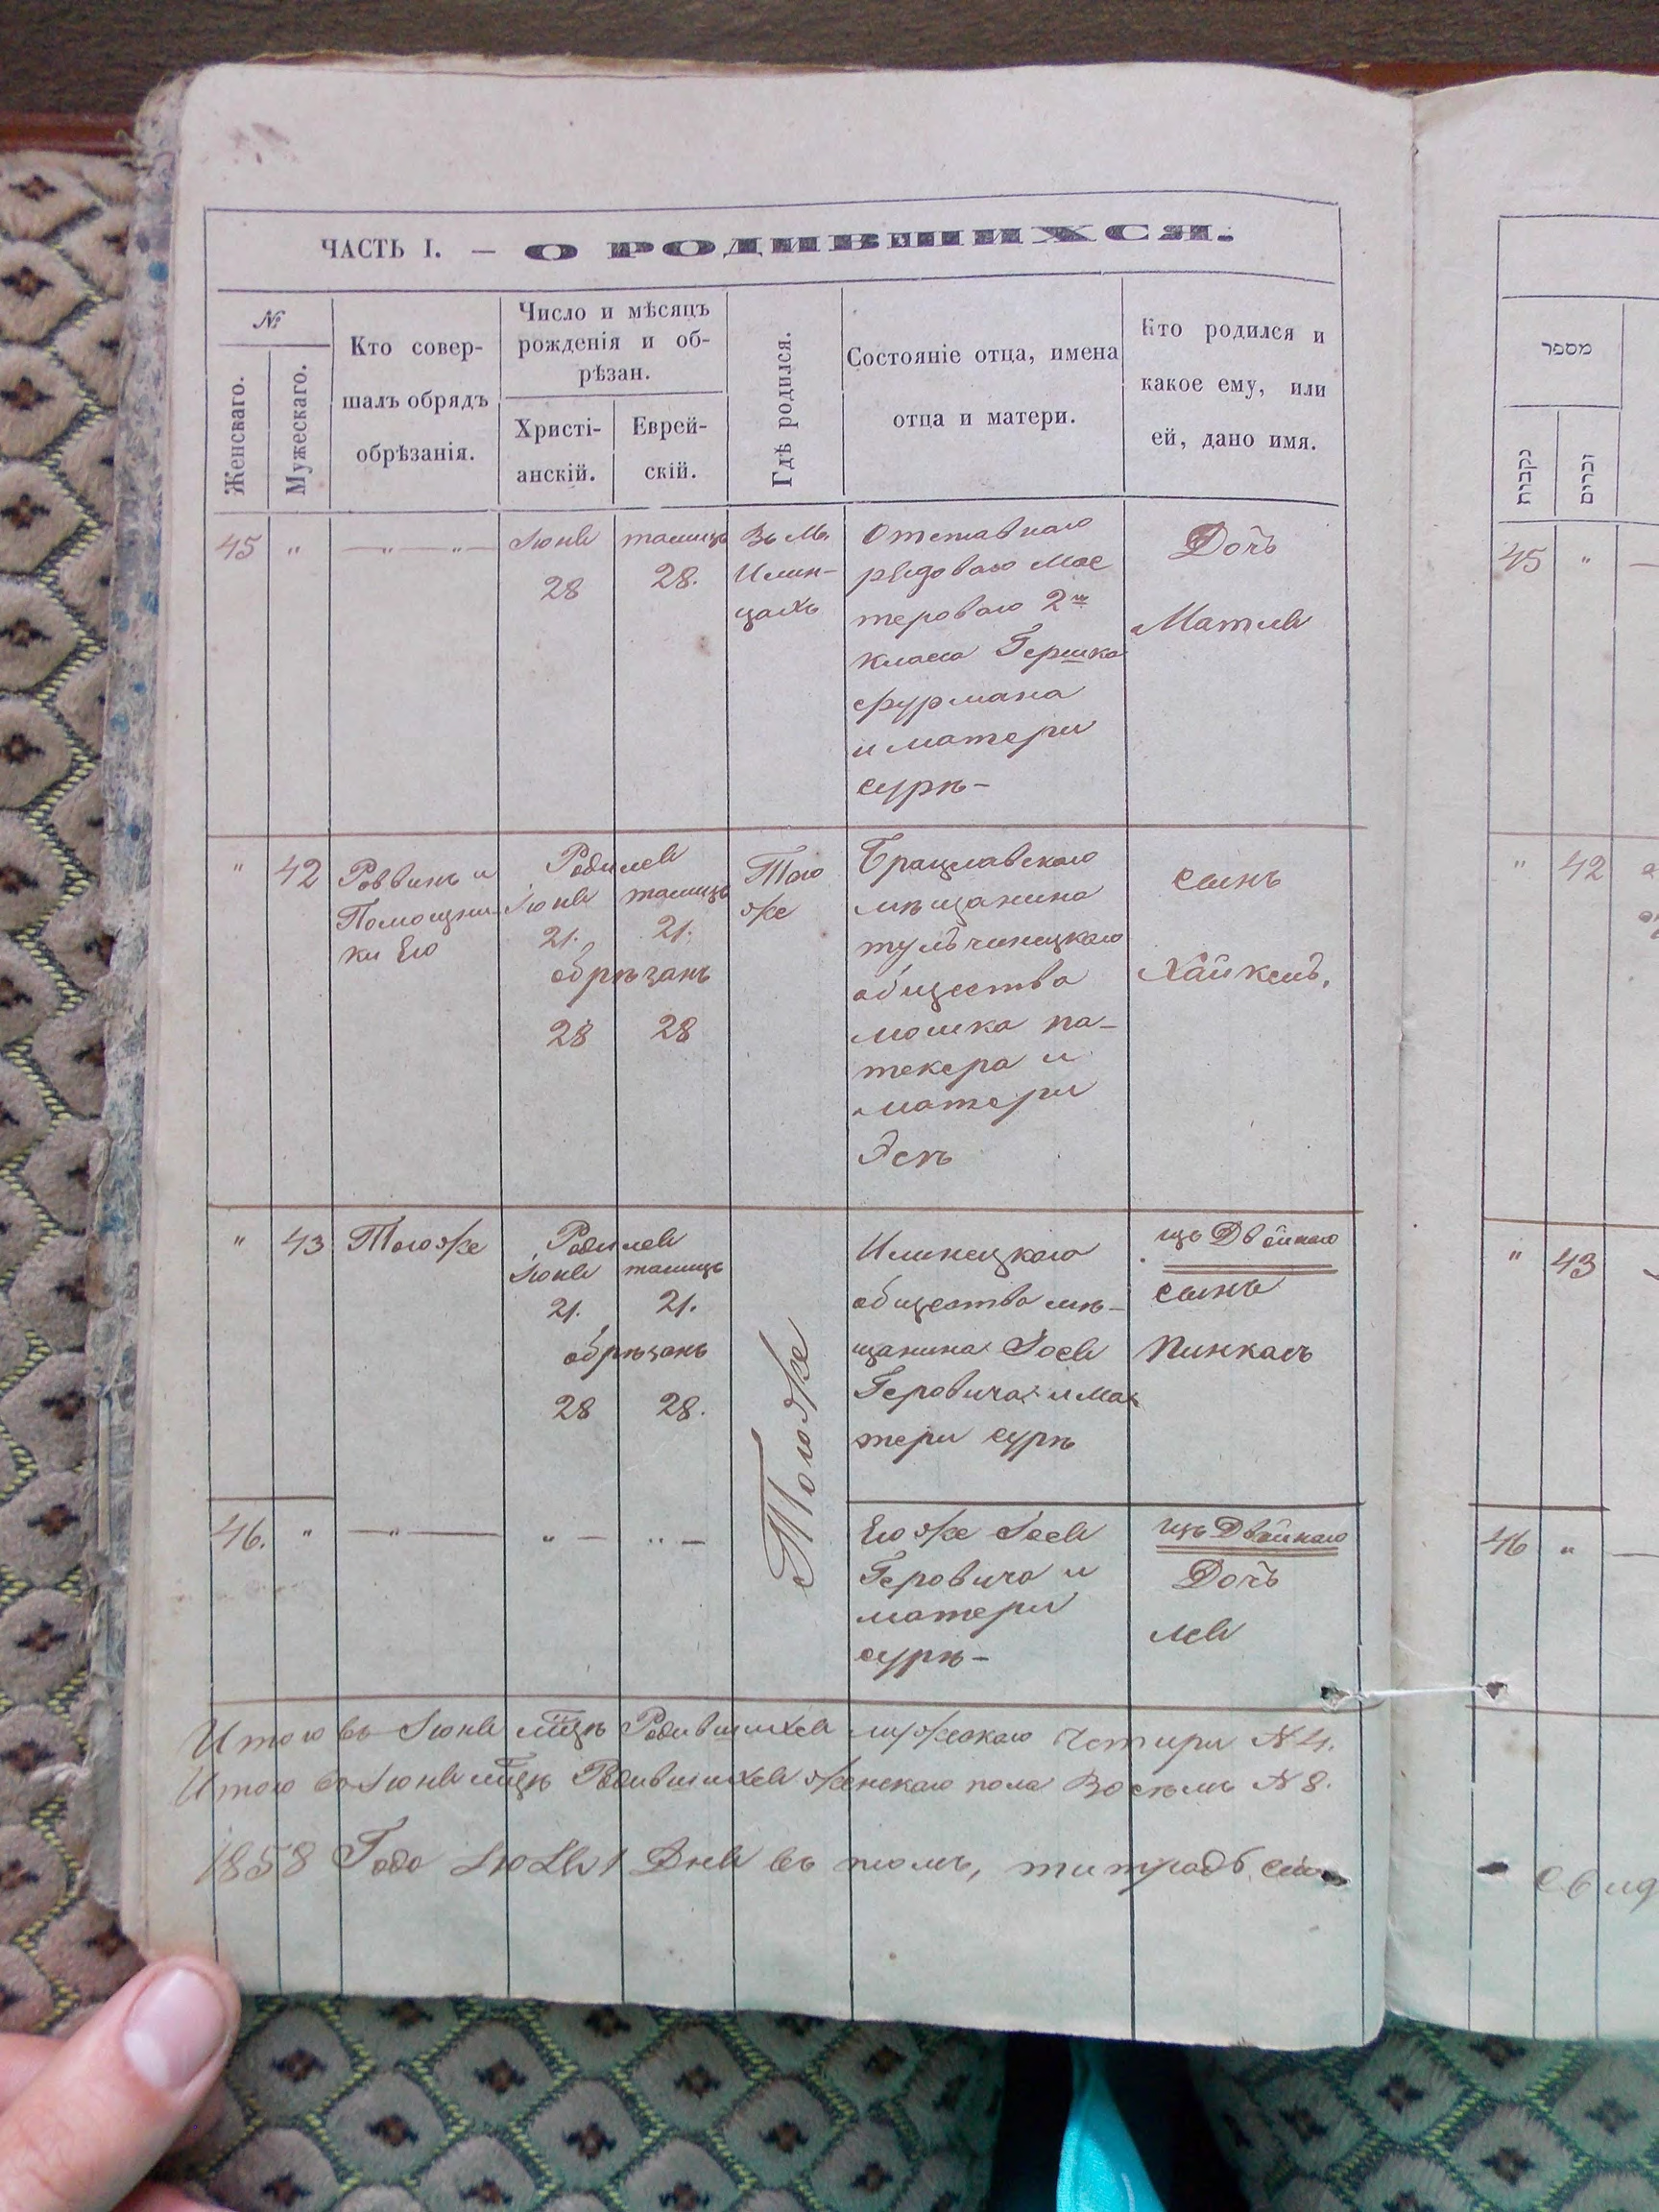 ЧАСТЬ I. — О РОДИВШИХСЯ.
№
Женскаго.
Мужескаго.
Кто совер-
шалъ обрядъ
обрѣзанія.
Число и мѣсяцъ
рожденія и об-
рѣзан.
Христі-
анскій.
Еврей-
скій.
Гдѣ родился.
Состояніе отца, имена
отца и матери.
Кто родился и
какое ему, или
ей, дано имя.
45 " —"— "—
Іюня
28
тамуцъ
28.
Въ М.
Илин-
цахъ
Отставнаго
рядоваго мас
тероваго 2го
класа Гершка
фурмана
и матери
сурѣ-
Дочь
Матля
" 42
Раввинъ и
Помощни-
ки Его
Родился
Іюня тамуцъ
21. 21.
обрѣзанъ
28 28
Того
же
Брацлавскаго
мѣщанина
тульчинецкаго
общества
мошка па-
текера и
матери
Эсѣ
сынъ
Хайкель,
" 43 Тогоже
Родился
Іюня тамуцъ
21. 21.
обрѣзанъ
28 28.
Тогоже
Илинецкаго
общества мѣ-
щанина Іося
Геровича и ма
тери сурѣ
изъ Двойнаго
сынъ
Пинкасъ
46. " —"— " — " —
Егоже Іося
Геровича и
матери
сурѣ-
изъ Двойнаго
Дочь
лея
Итого въ Іюня мцѣ Родившихся мужскаго Четири N 4.
Итого во Іюня мцѣ Родившихся женскаго пола Восѣмъ N 8.
1858 Года Іюля 1 Дня въ томъ, титрадѣ
מספר
נקבות
זכרים
45 "
" 42
" 43
46 "